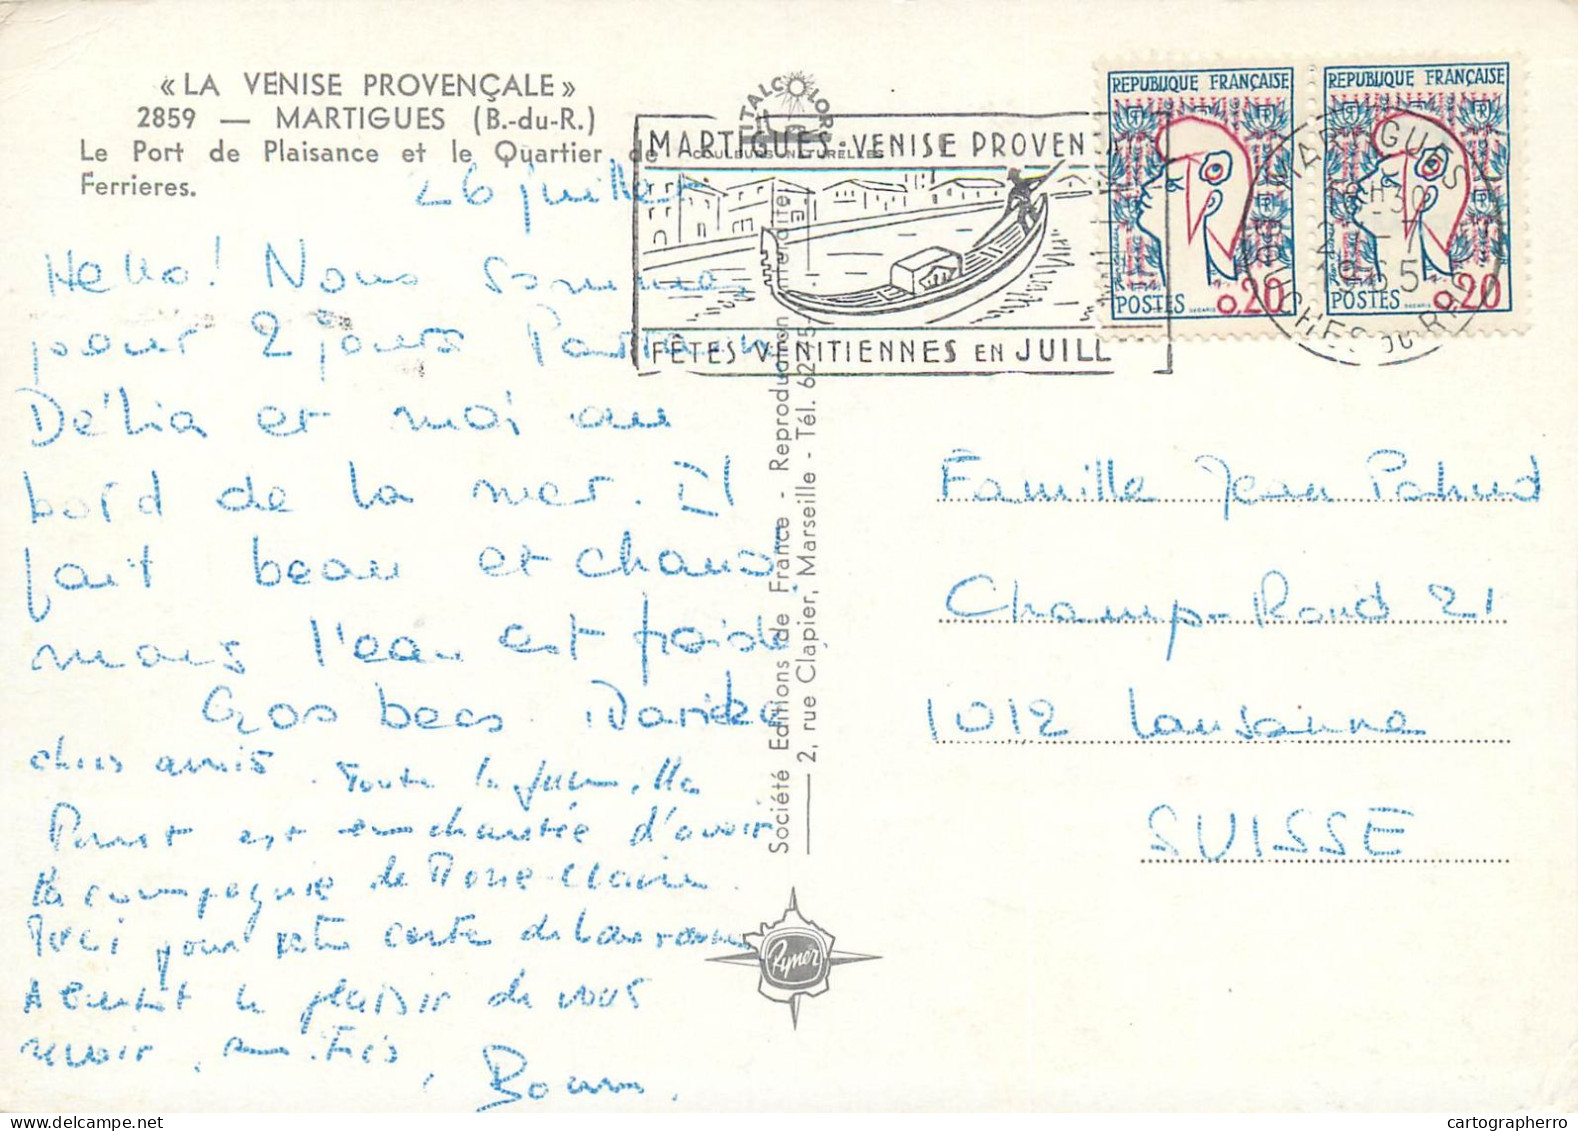 « LA VENISE PROVENÇALE »
2859 — MARTIGUES (B.-du-R.)
Le Port de Plaisance et le Quartier de
Ferrieres.
ITALCOLORS
COULEURS NATURELLES
MARTIGUES·VENISE PROVEN
FÊTES VÉNITIENNES EN JUILL
REPUBLIQUE FRANÇAISE
POSTES 0.20
REPUBLIQUE FRANÇAISE
POSTES 0.20
MARTIGUES
1965
BOUCHES DU RH
26 juillet
Hello! Nous sommes
pour 2 jours
Délia et moi au
bord de la mer. Il
fait beau et chaud
mais l'eau est froide
Gros becs.
chers amis. Toute la famille
est enchantée d'avoir
la compagnie de Rose-Claire.
Merci pour votre carte de Lausanne
A bientôt le plaisir de vous
revoir,
Société Editions de France - Reproduction interdite
2, rue Clapier, Marseille - Tél. 62
Ryner
Famille Jean Pahud
Champ-Rond 21
1012 Lausanne
SUISSE
cartographerro